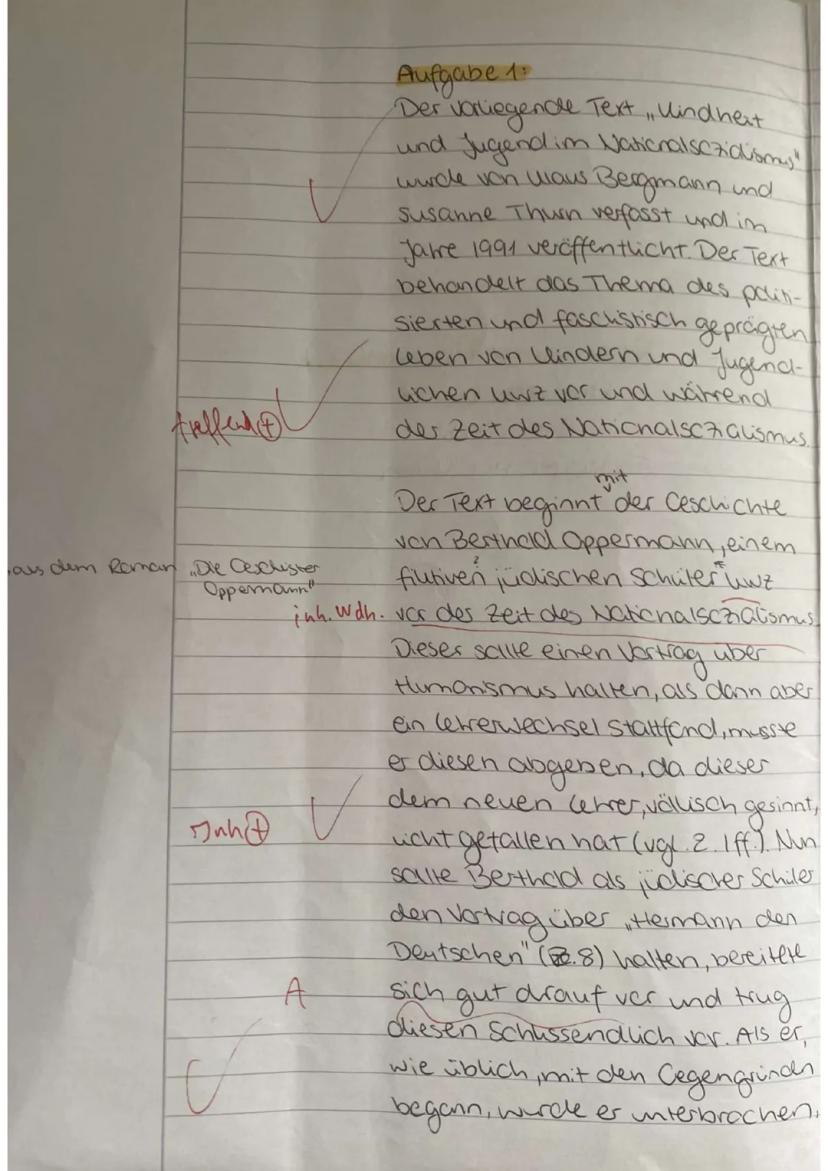 Aufgabe 1:
Der vorliegende Text „Kindheit
und Jugend im Nationalsozialismus"
wurde von Klaus Bergmann und
Susanne Thurn verfasst und im
Jahre 1991 veröffentlicht. Der Text
behandelt das Thema des politi-
sierten und faschistisch geprägten
Leben von Kindern und Jugend-
lichen kurz vor und während
treffend +
der Zeit des Nationalsozialismus.
mit
Der Text beginnt der Geschichte
von Berthold Oppermann, einem
, aus dem Roman „Die Geschister
Oppermann"
fiktiven jüdischen Schüler kurz
inh. Wdh.
vor der Zeit des Nationalsozialismus.
Dieser sollte einen Vortrag über
Humanismus halten, als dann aber
ein Lehrerwechsel stattfand, musste
er diesen abgeben, da dieser
dem neuen Lehrer, völkisch gesinnt,
Inh +
nicht gefallen hat (vgl. Z. 1ff.). Nun
sollte Berthold als jüdischer Schüler
den Vortrag über „Hermann den
Deutschen" (Z. 8) halten, bereitete
A
sich gut drauf vor und trug
diesen Schlussendlich vor. Als er,
wie üblich, mit den Gegengründen
begann, wurde er unterbrochen,